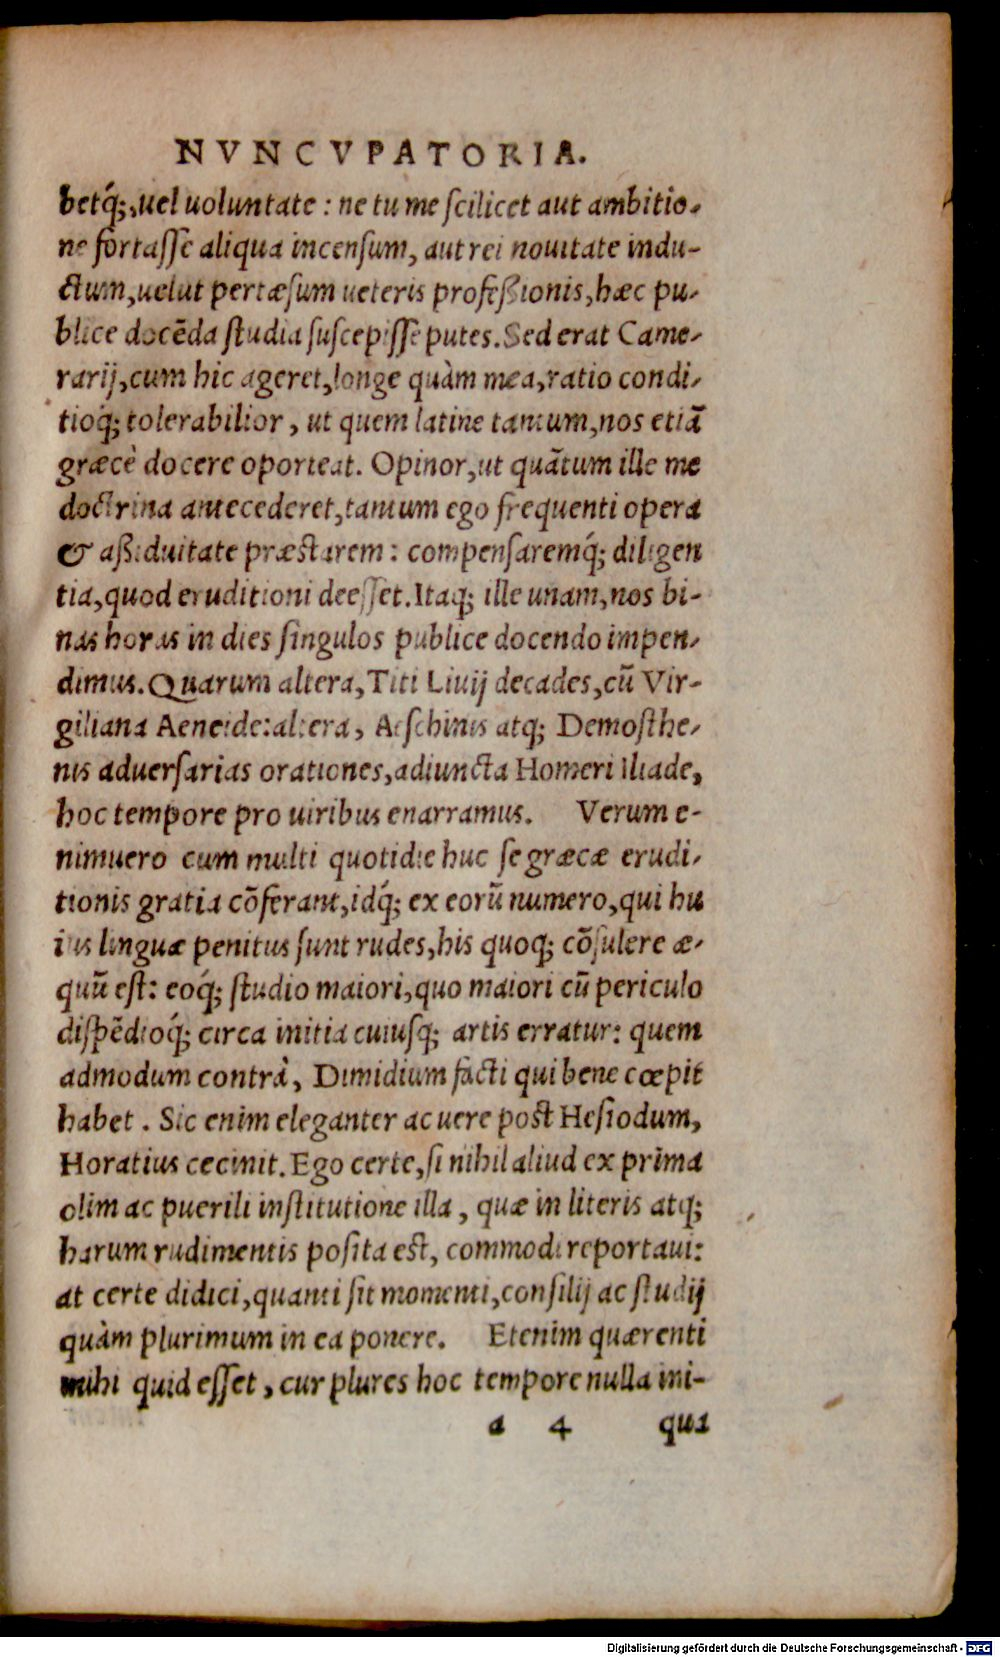 NVNCVPATORIA.
betq́;, uel uoluntate : ne tu me ſcilicet aut ambitio-
ne fortaſſe aliqua incenſum, aut rei nouitate indu-
ctum, uelut pertæſum ueteris profeßionis, hæc pu-
blice docēda ſtudia ſuſcepiſſe putes. Sed erat Came-
rarij, cum hic ageret, longe quàm mea, ratio condi-
tioq́; tolerabilior, ut quem latine tantum, nos etiā
græcè docere oporteat. Opinor, ut quātum ille me
doctrina antecederet, tantum ego frequenti opera
& aßiduitate præſtarem : compenſaremq́; diligen
tia, quod eruditioni deeſſet. Itaq; ille unam, nos bi-
nas horas in dies ſingulos publice docendo impen-
dimus. Quarum altera, Titi Liuij decades, cū Vir-
giliana Aeneide: altera, Aeſchinis atq; Demoſthe-
nis aduerſarias orationes, adiuncta Homeri Iliade,
hoc tempore pro uiribus enarramus. Verum e-
nimuero cum multi quotidie huc ſe græcæ erudi-
tionis gratia cōferant, idq́; ex eorū numero, qui hu
ius linguæ penitus ſunt rudes, his quoq; cōſulere æ-
quū eſt: eoq́; ſtudio maiori, quo maiori cū periculo
diſpēdioq́; circa initia cuiuſq; artis erratur: quem
admodum contrà, Dimidium facti qui bene cœpit
habet. Sic enim eleganter ac uere poſt Heſiodum,
Horatius cecinit. Ego certe, ſi nihil aliud ex prima
olim ac puerili inſtitutione illa, quæ in literis atq;
harum rudimentis poſita eſt, commodi reportaui:
at certe didici, quanti ſit momenti, conſilij ac ſtudij
quàm plurimum in ea ponere. Etenim quærenti
mihi quid eſſet, cur plures hoc tempore nulla ini-
a 4 qua
Digitalisierung gefördert durch die Deutsche Forschungsgemeinschaft - DFG